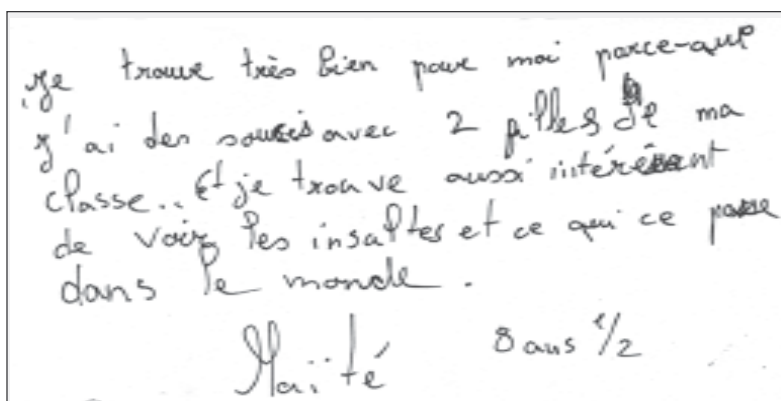 Je trouve très bien pour moi parce-que
j'ai des soucis avec 2 filles de ma
classe.. Et je trouve aussi intéréssant
de voir les insultes et ce qui ce passe
dans le monde.
Maïté 8 ans 1/2